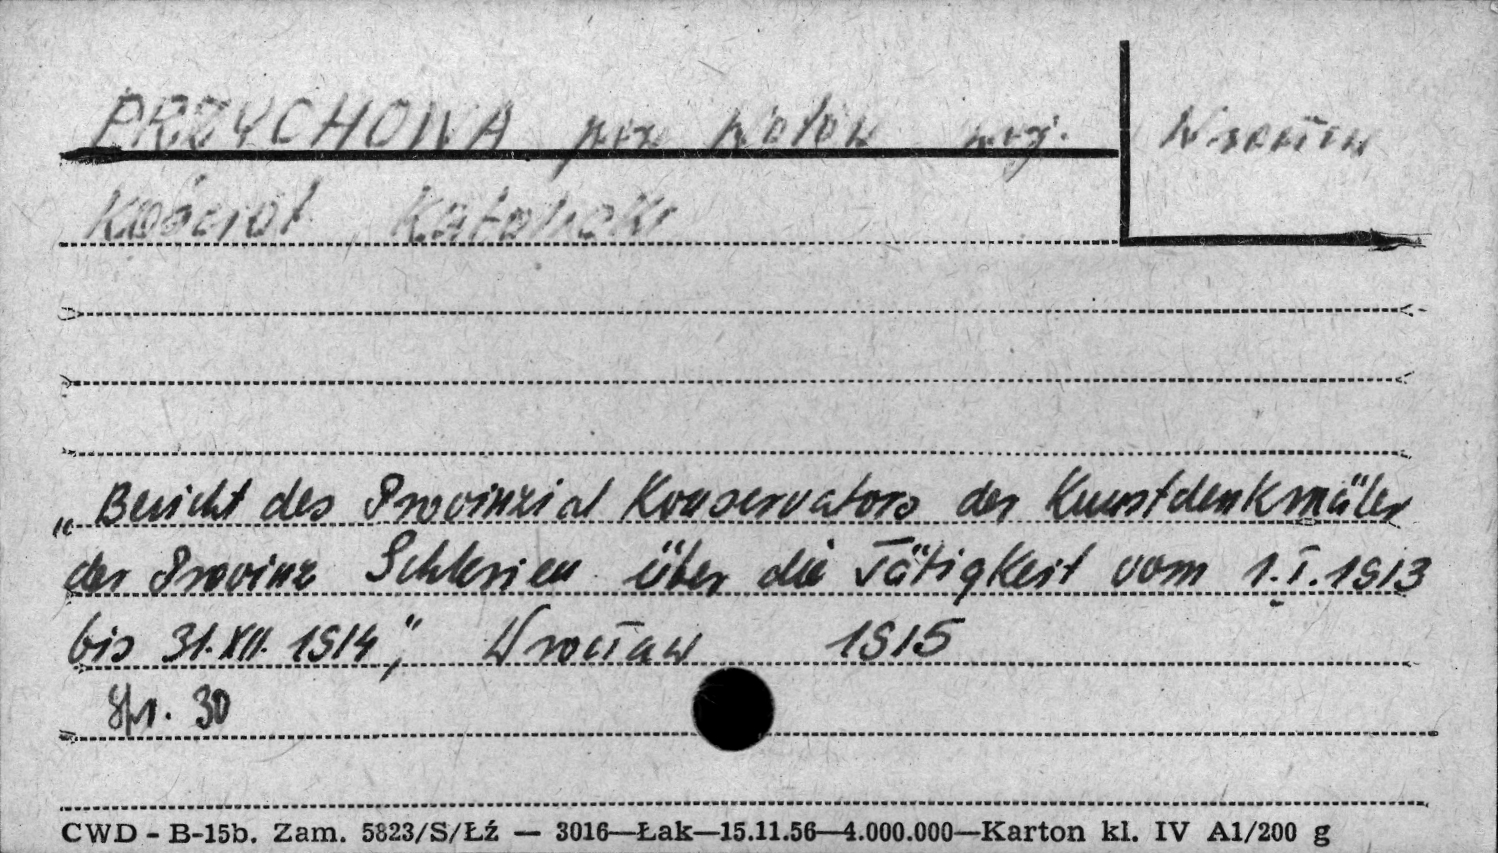 PRZYCHOWA pow Wołów woj. Wrocław
Kościół Katolicki
„Bericht des Provinzial Konservators der Kunstdenkmäler
der Provinz Schlesien über die Tätigkeit vom 1.I.1913
bis 31.XII. 1914", Wrocław 1915
30
CWD - B-15b. Zam. 5823/S/Łź — 3016—Łak—15.11.56—4.000.000—Karton kl. IV A1/200 g